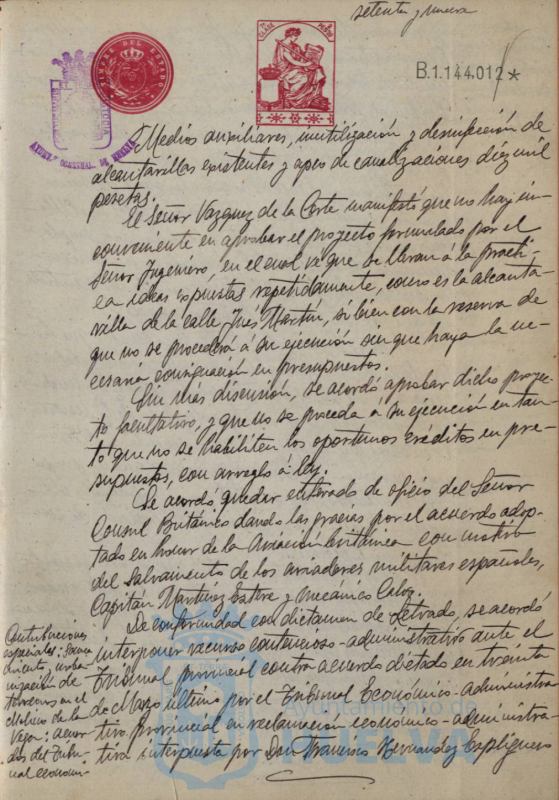 setenta y nueve
TIMBRE DEL ESTADO
1ª CLASE
B.1.144.012*
AYUNTº CONSTNAL. DE HUELVA
Medios auxiliares, inutilización y desinfección de
alcantarillas existentes y apeos de canalizaciones diez mil
pesetas.
El Señor Vazquez de la Corte manifestó que no hay in-
conveniente en aprobar el proyecto formulado por el
Señor Ingeniero, en el cual ve que se llevan á la practi-
ca ideas expuestas repetidamente, como es la alcanta-
rilla de la calle Ines Martin, si bien con la reserva de
que no se procederá a su ejecución sin que haya la ne-
cesaria consignación en presupuestos.
Sin más discusión, se acordó aprobar dicho proyec-
to facultativo, y que no se proceda a su ejecución en tan-
to que no se habiliten los oportunos créditos en pre-
supuestos, con arreglo á ley.
Se acordó quedar enterado de oficio del Señor
Consul Británico dando las gracias por el acuerdo adop-
tado en honor de la Aviación británica con motivo
del salvamento de los aviadores militares españoles,
Capitán Martinez Esteve y mecánico Calvo.
De conformidad con dictamen de Letrado, se acordó
interponer recurso contencioso-administrativo ante el
Tribunal provincial contra acuerdo dictado en treinta
de Marzo último por el Tribunal Económico-administra
tivo provincial en reclamación económico-administra
tiva interpuesta por Don Francisco Hernandez Espliguero
Contribuciones
especiales: Sanea
miento, urba-
nización de
terrenos en el
de la
Vega: acuer-
dos del Tribu-
nal economi-
Ayuntamiento de
HUELVA